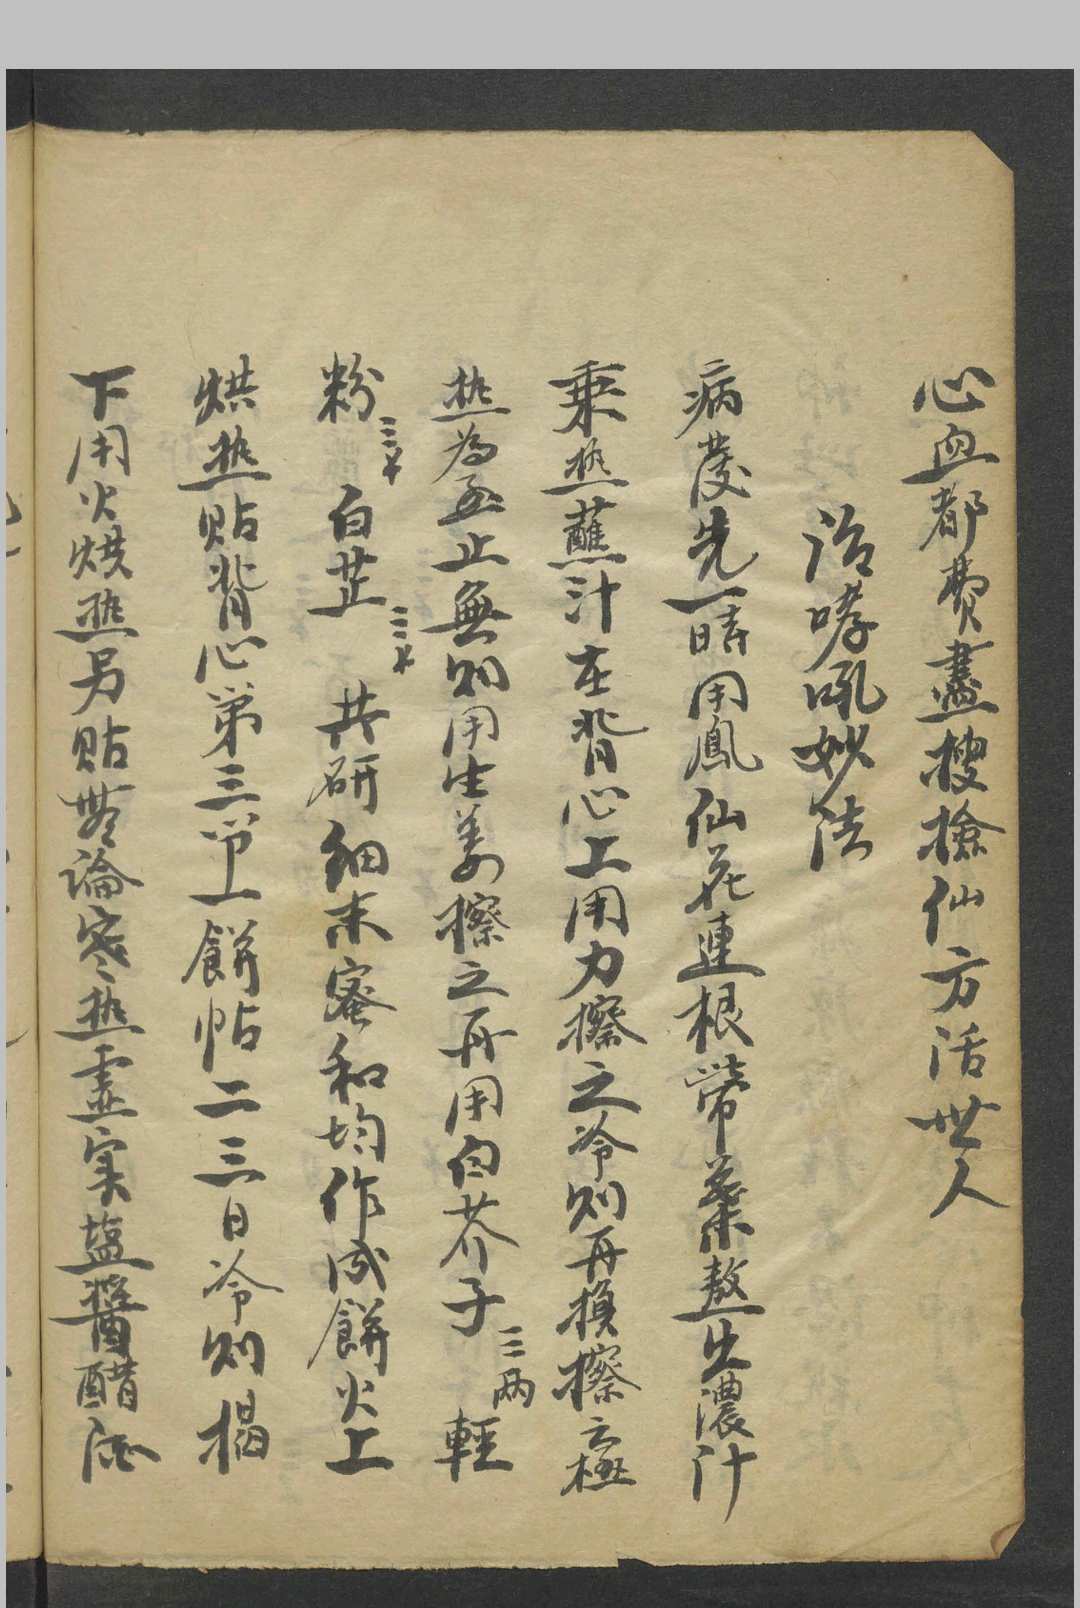 心血都費盡搜撿仙方活世人
治哮吼妙法
病發先一時用鳳仙花連根帶葉熬出濃汁
乗热蘸汁在背心上用力擦之冷則再換擦之極
热為至止無則用生姜擦之再用白芥子三两輕
粉三才白芷三才共研細末蜜和均作成餅火上
烘热貼背心第三節上餅帖二三日冷則揭
下用火烘热另貼無論寒热虛实盐醬醋酒